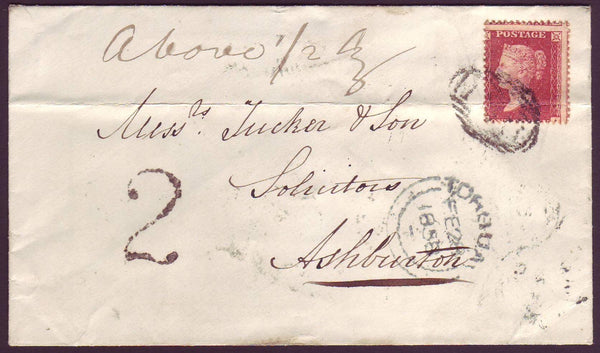 POSTAGE
Above 1/2 oz
Messrs. Tucker & Son
Solicitors
Ashburton
2
TORQUAY
FE 2
1858